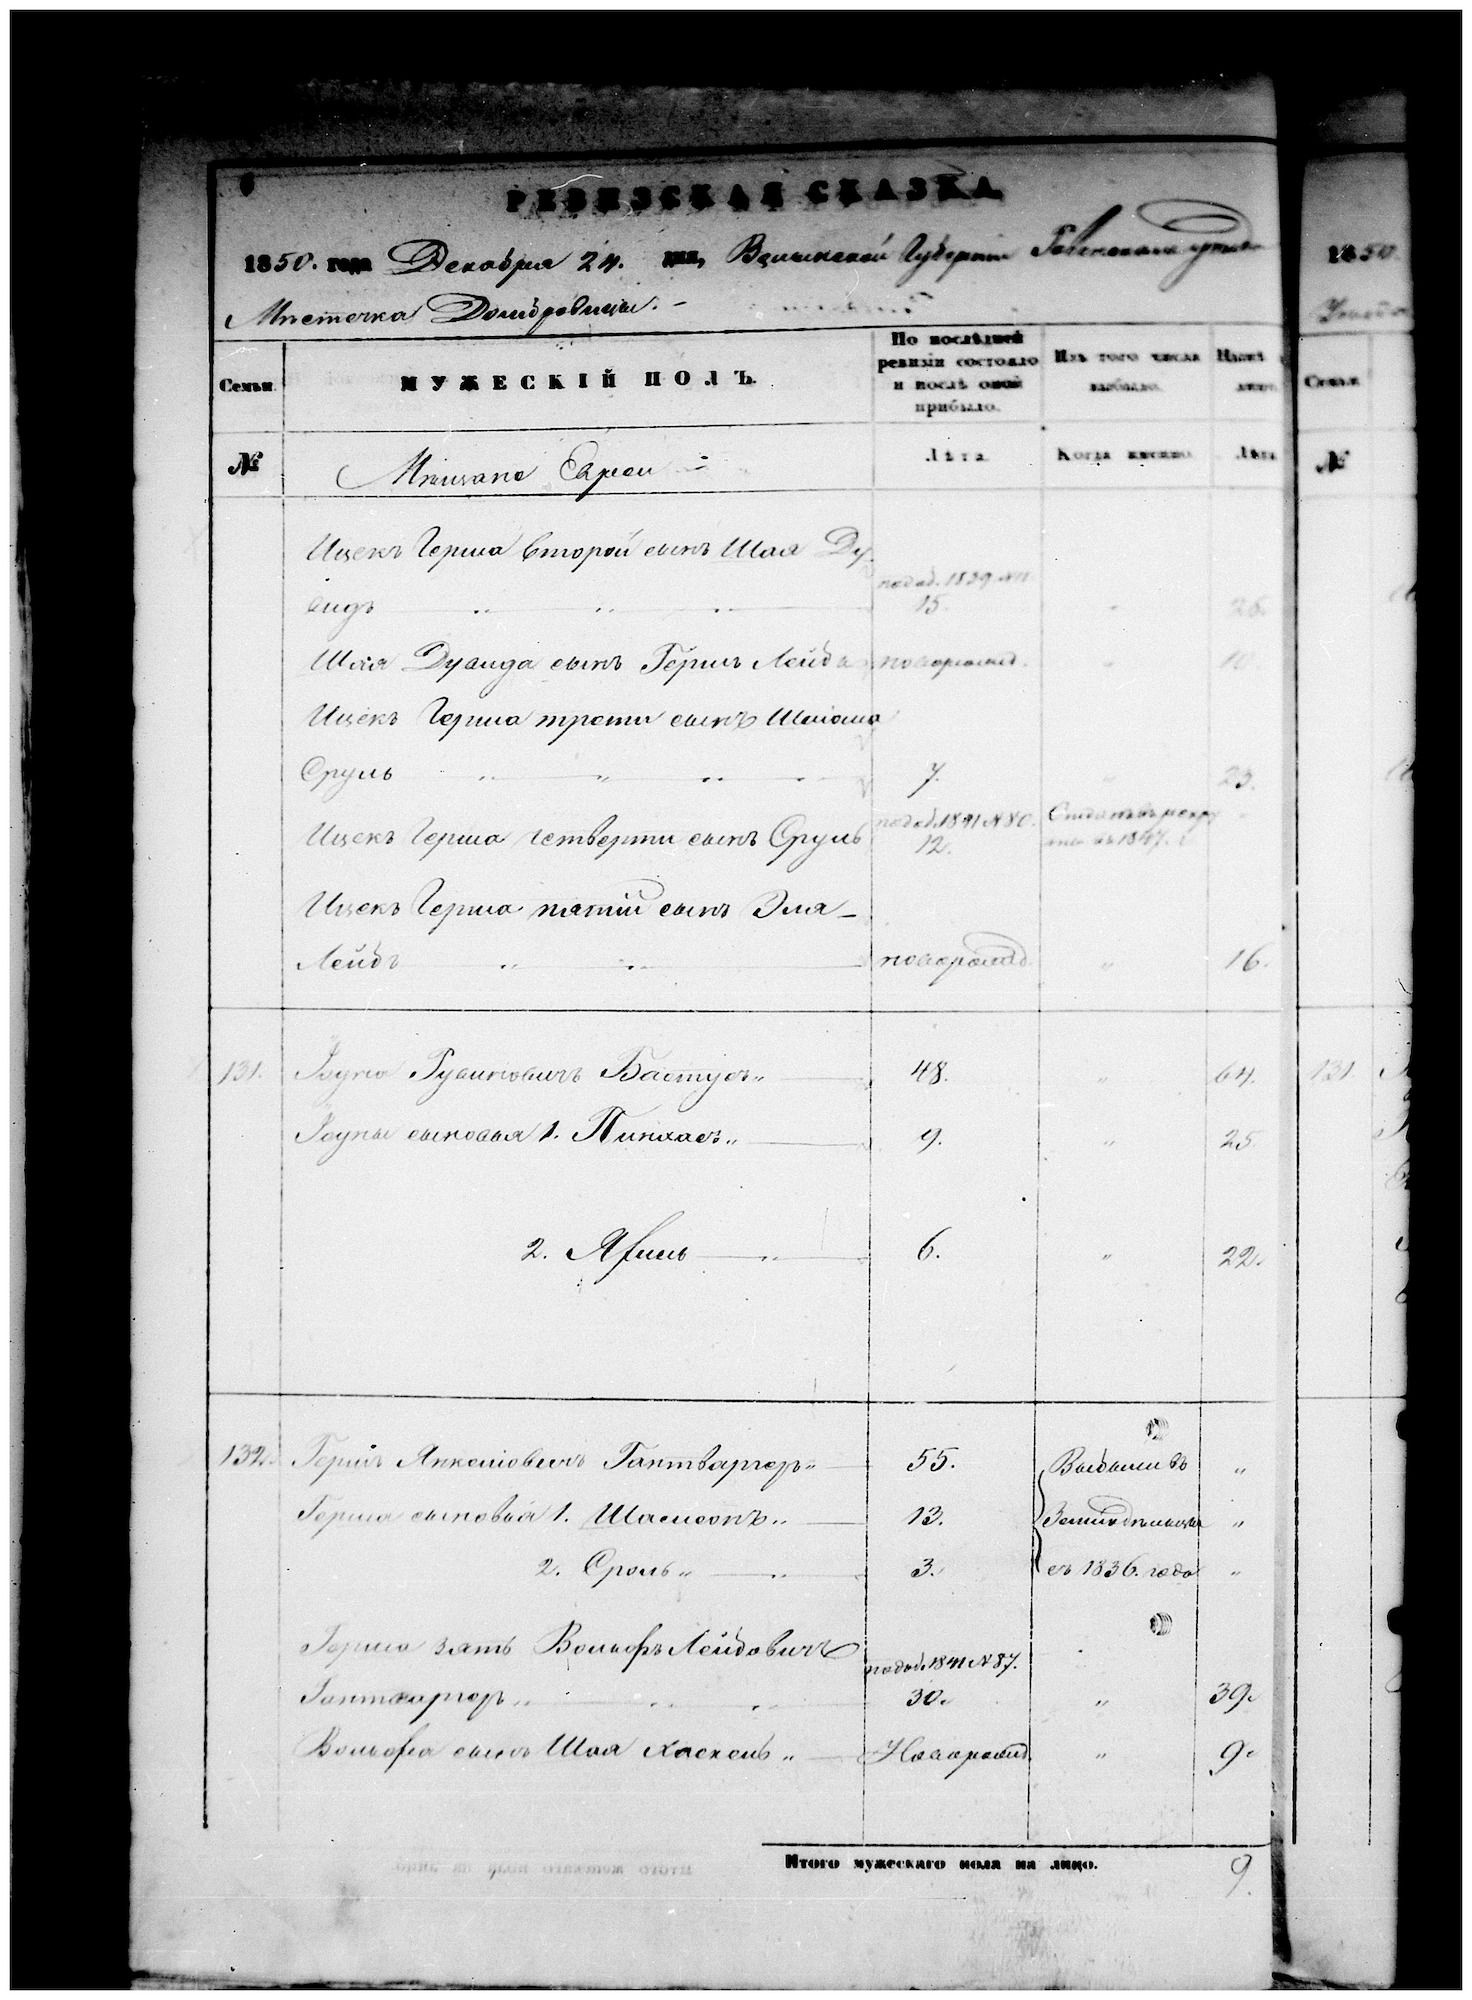 РЕВИЗСКАЯ СКАЗКА
1850. года Декабря 24. дня, Волынской Губернии Ровенскаго уезда
Местечка Домбровицы.
Семьи. МУЖЕСКІЙ ПОЛЪ. По послѣдней ревизіи состояло и послѣ оной прибыло. Изъ того числа выбыло. Нынѣ
№ Мещане Евреи Лѣта Когда именно. Лѣта
Ицекъ Герша второй сынъ Шая Ду
видъ подоб. 1839. N11 15. " 26.
Шая Дувида сынъ Гершъ Лейба новорожд. " 10.
Ицекъ Герша трети сынъ
Сруль 7. " 23.
Ицекъ Герша четверти сынъ Сруль подоб. 1841 N 80. 12. Сдан въ рекру
ты въ 1847. "
Ицекъ Герша пятій сынъ Эля
Лейбъ новорожд. " 16.
131. Рувиновичъ Бастусъ 48. " 64. 131.
сыновья 1. Пинхасъ 9. " 25.
2. 6. " 22.
132. Гершъ Янкелiовичъ Гантваргеръ 55. Выбыли въ "
Герша сыновья 1. Шамсонъ 13. Земледельцы "
2. Сроль 3. съ 1836. года "
Герша зять Вольфъ Лейбовичъ
Гантваргеръ подоб. 1841 N 87. 30. " 39.
Вольфа сынъ Шая Хаскель Новорожд. " 9.
Итого мужескаго пола на лицо. 9.
1850
Семьи
№